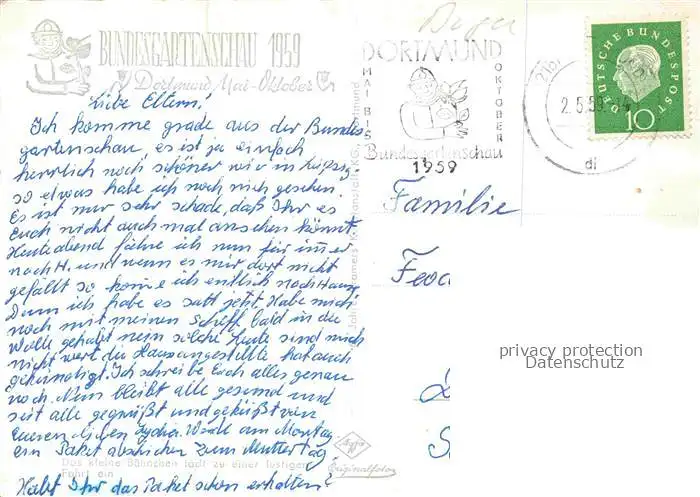 BUNDESGARTENSCHAU 1959
Dortmund Mai-Oktober
Liebe Eltern!
Ich komme grade aus der Bundes
gartenschau, es ist ja einfach
herrlich noch schöner wie in Leipzig.
so etwas habe ich noch nich gesehen.
Es ist nur sehr schade, daß Ihr es
Euch nicht auch mal anschen könnt.
Heute abend fahre ich nun für immer
nach H. und wenn es mir dort nicht
gefällt so komme ich entlich nach Haus
Denn ich habe es satt jetzt. Habe mich
noch mit meinen Scheff bald in die
Wolle gehabt nein solche Leute sind mich
nicht wert die Hausangestellte hat auch
gekündigt. Ich schreibe Euch alles genau
noch. Nun bleibt alle gesund und
seit alle gegrüßt und geküßt von
Eueren lieben Lydia. Werde am Montag
ein Paket abschicken zum Muttertag
Das kleine Bähnchen lädt zu einer lustigen
Fahrt ein
Habt Ihr das Paket schon erhalten?
Agfa
Originalfoto
DORTMUND
MAI BIS
OKTOBER
Bundesgartenschau
1959
2.5.59
DEUTSCHE BUNDESPOST
10
Familie
privacy protection
Datenschutz